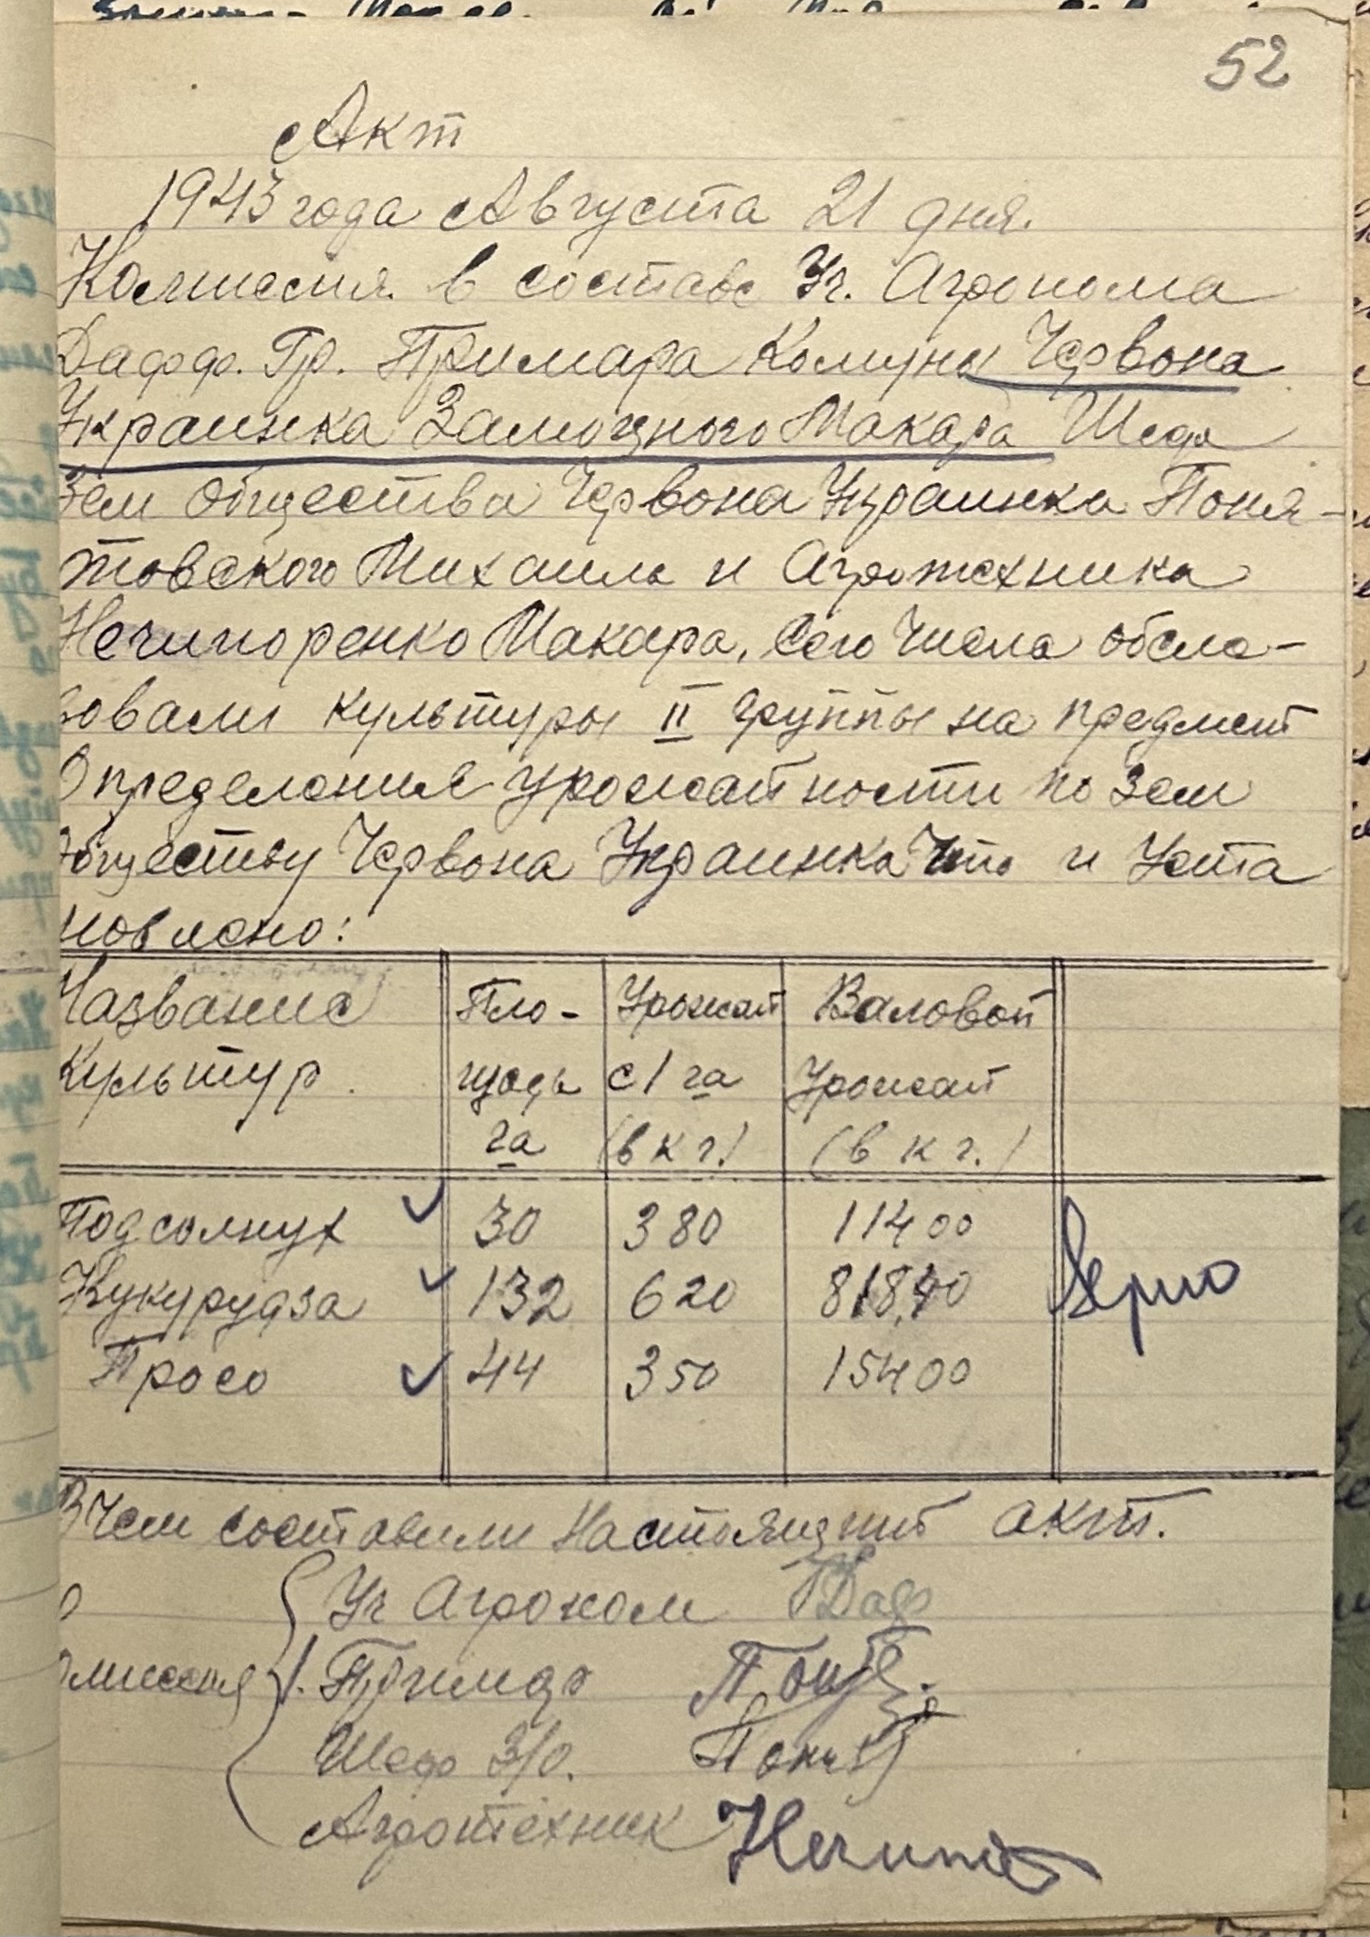 52
Акт
1943 года Августа 21 дня.
Комиссия в составе Уч. Агронома
Дафф. Гр. Примара Комуны Червона
Украинка Замощного Макара Шефа
Зем общества Червона Украинка Поня-
товского Михаила и Агротехника
Нечипоренко Макара, сего числа обсле-
вовали культуры II группы на предмет
Определения урожайности по Зем
обществу Червона Украинка Что и Уста
новлено:
Название Пло- Урожай Валовой
Культур. щадь с 1 га Урожай
га (в кг.) (в кг.)
Подсолнух 30 380 11400
Кукурудза 132 620 81840
Просо 44 350 15400
Верно
В Чем составили Настоящий акт.
Уч Агроном Даф
омиссия 1. Примар
Шеф З/О. Поня
Агротехник Нечип